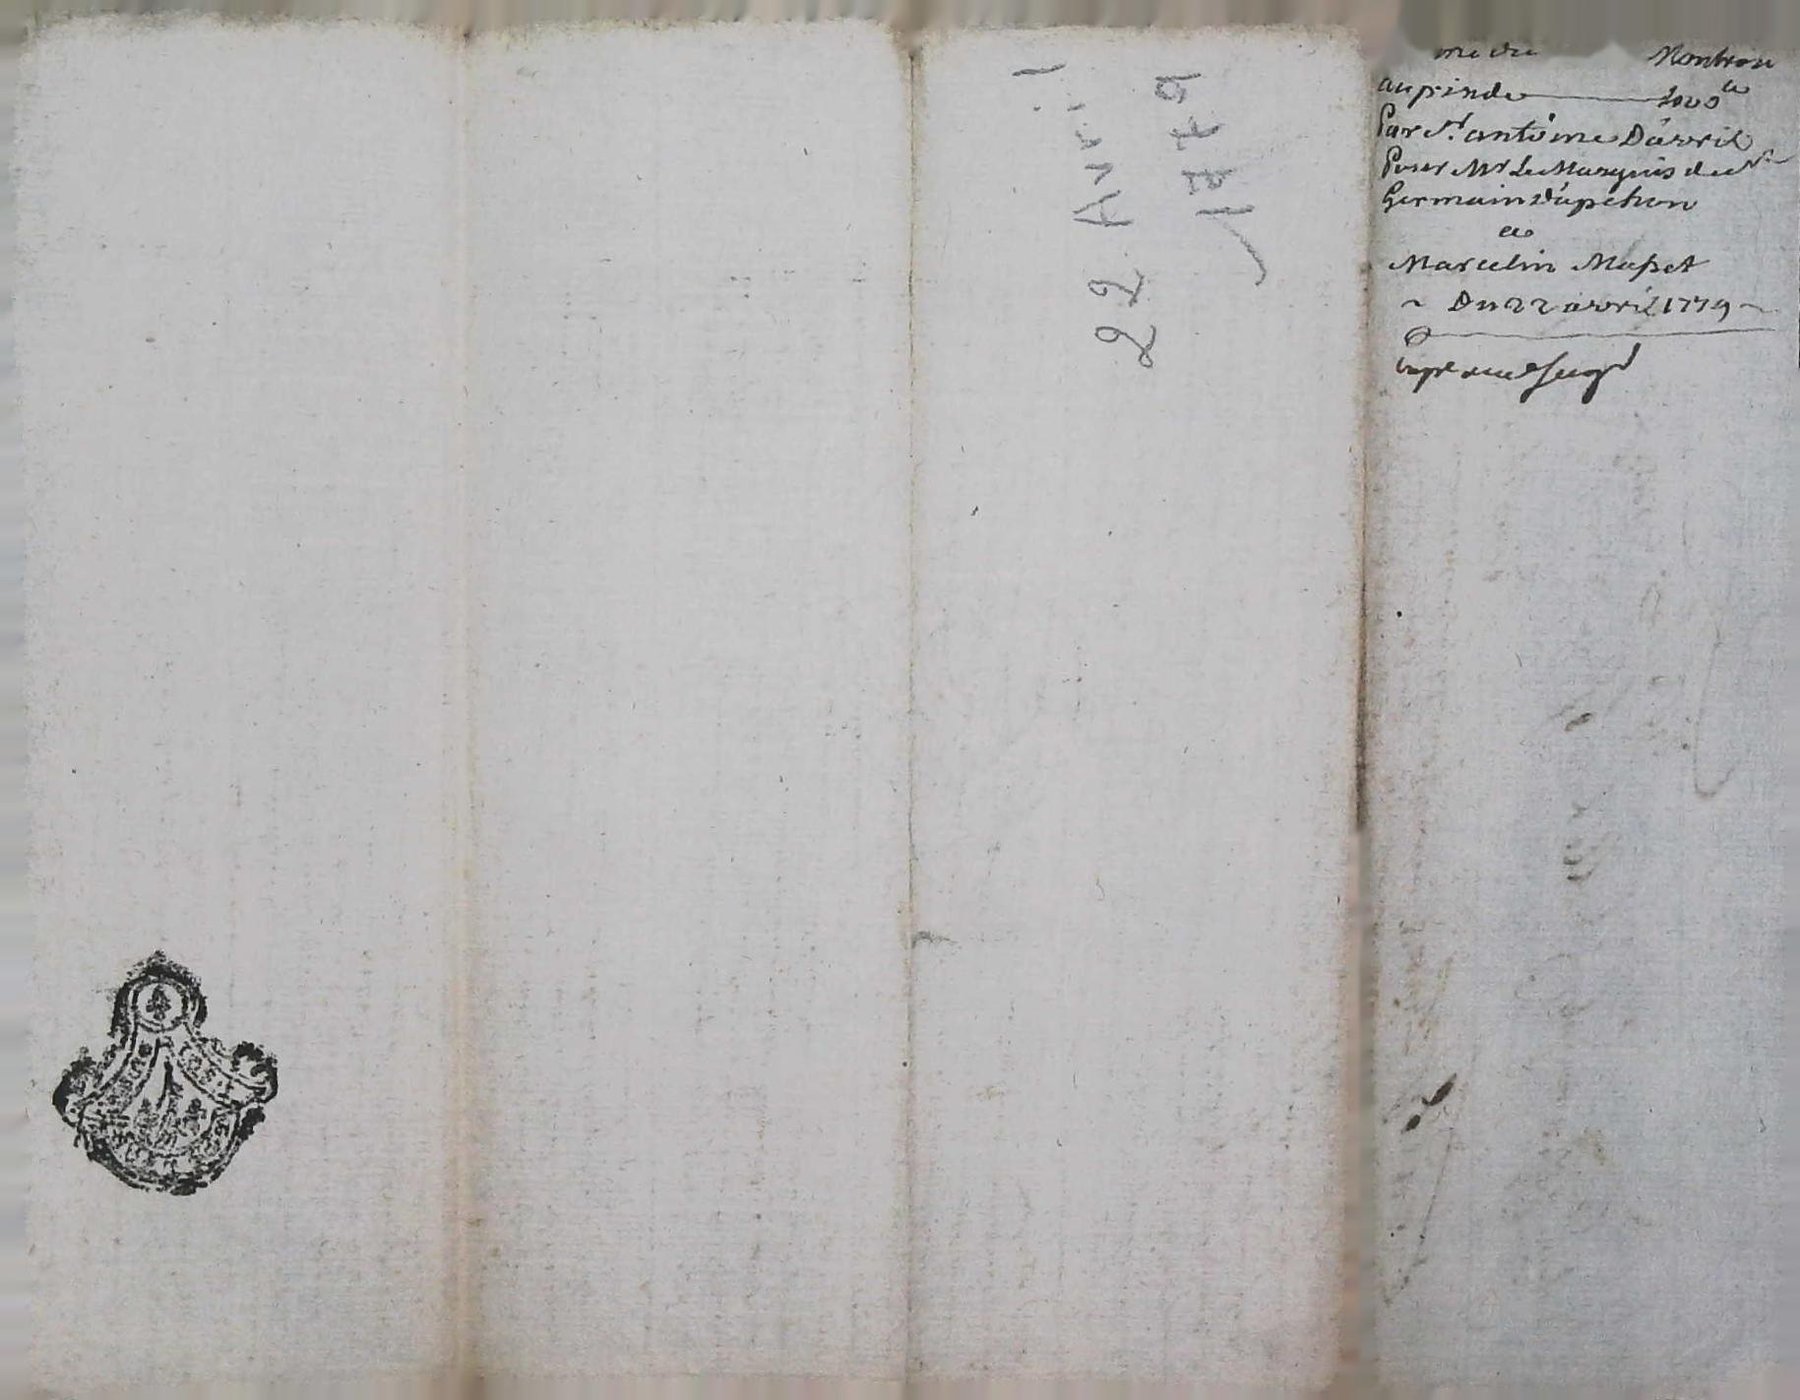 22 Avril
1779
Montron
au prix de 1000 #
Par Sr. antoine Davril
Pour Mr Le Marquis de St
Germain Dapchon
a
Marcelin Masset
~ Du 22 avril 1779 ~